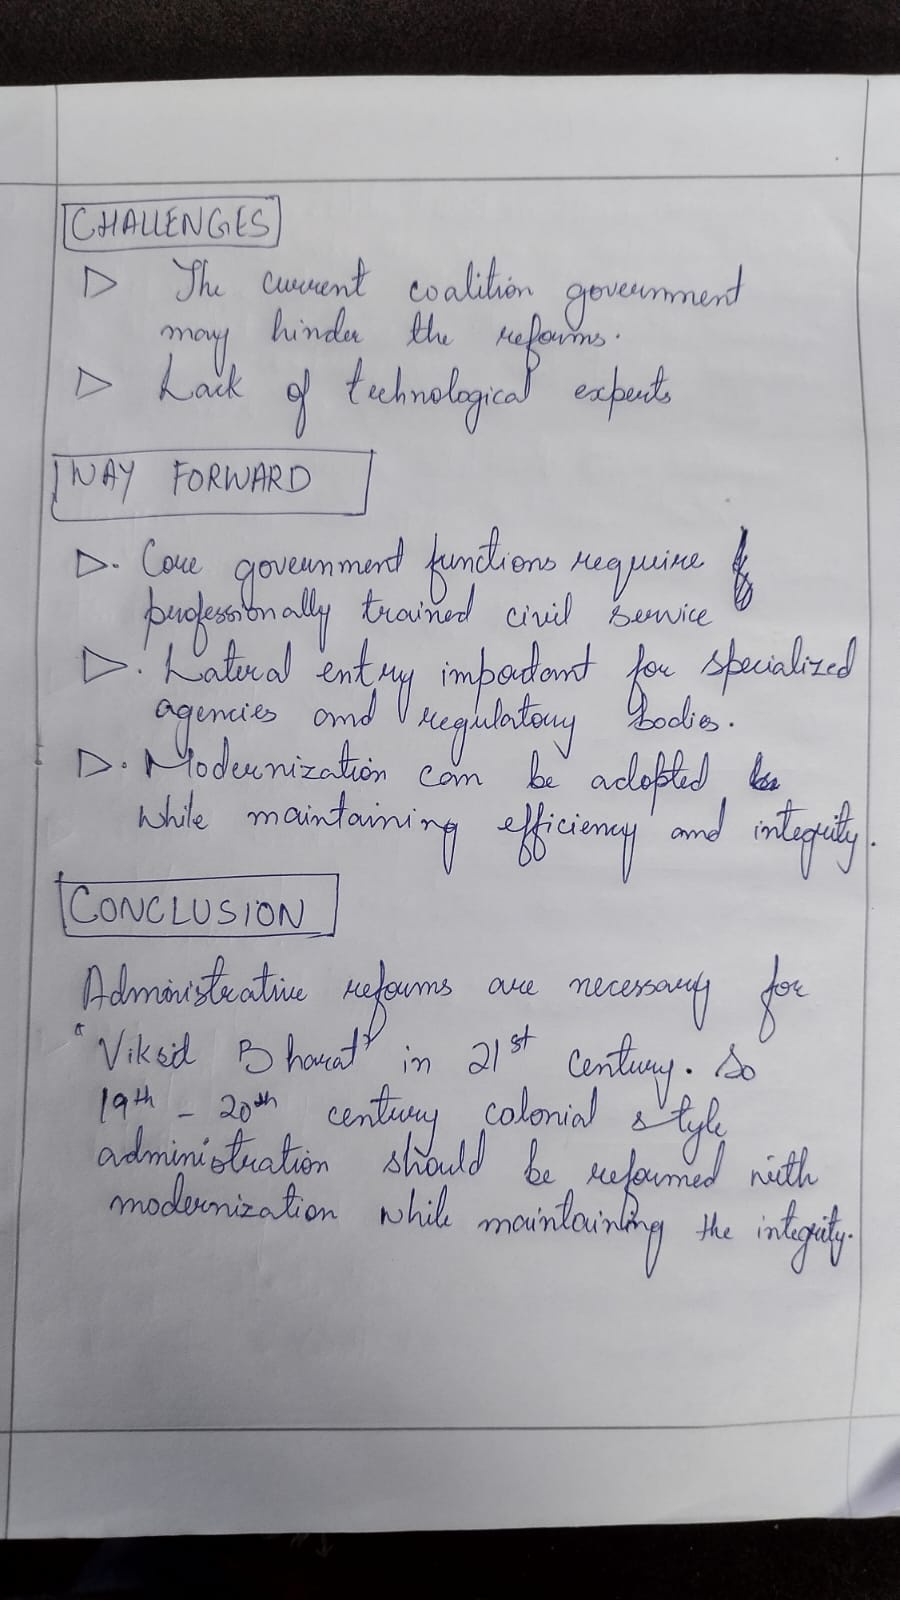 CHALLENGES
The current coalition government
may hinder the reforms.
Lack of technological experts
WAY FORWARD
Core government functions require
professionally trained civil service
Lateral entry important for specialized
agencies and regulatory bodies.
Modernization can be adopted
while maintaining efficiency and integrity.
CONCLUSION
Administrative reforms are necessary for
"Viksit Bharat" in 21st Century. So
19th - 20th century colonial style
administration should be reformed with
modernization while maintaining the integrity.